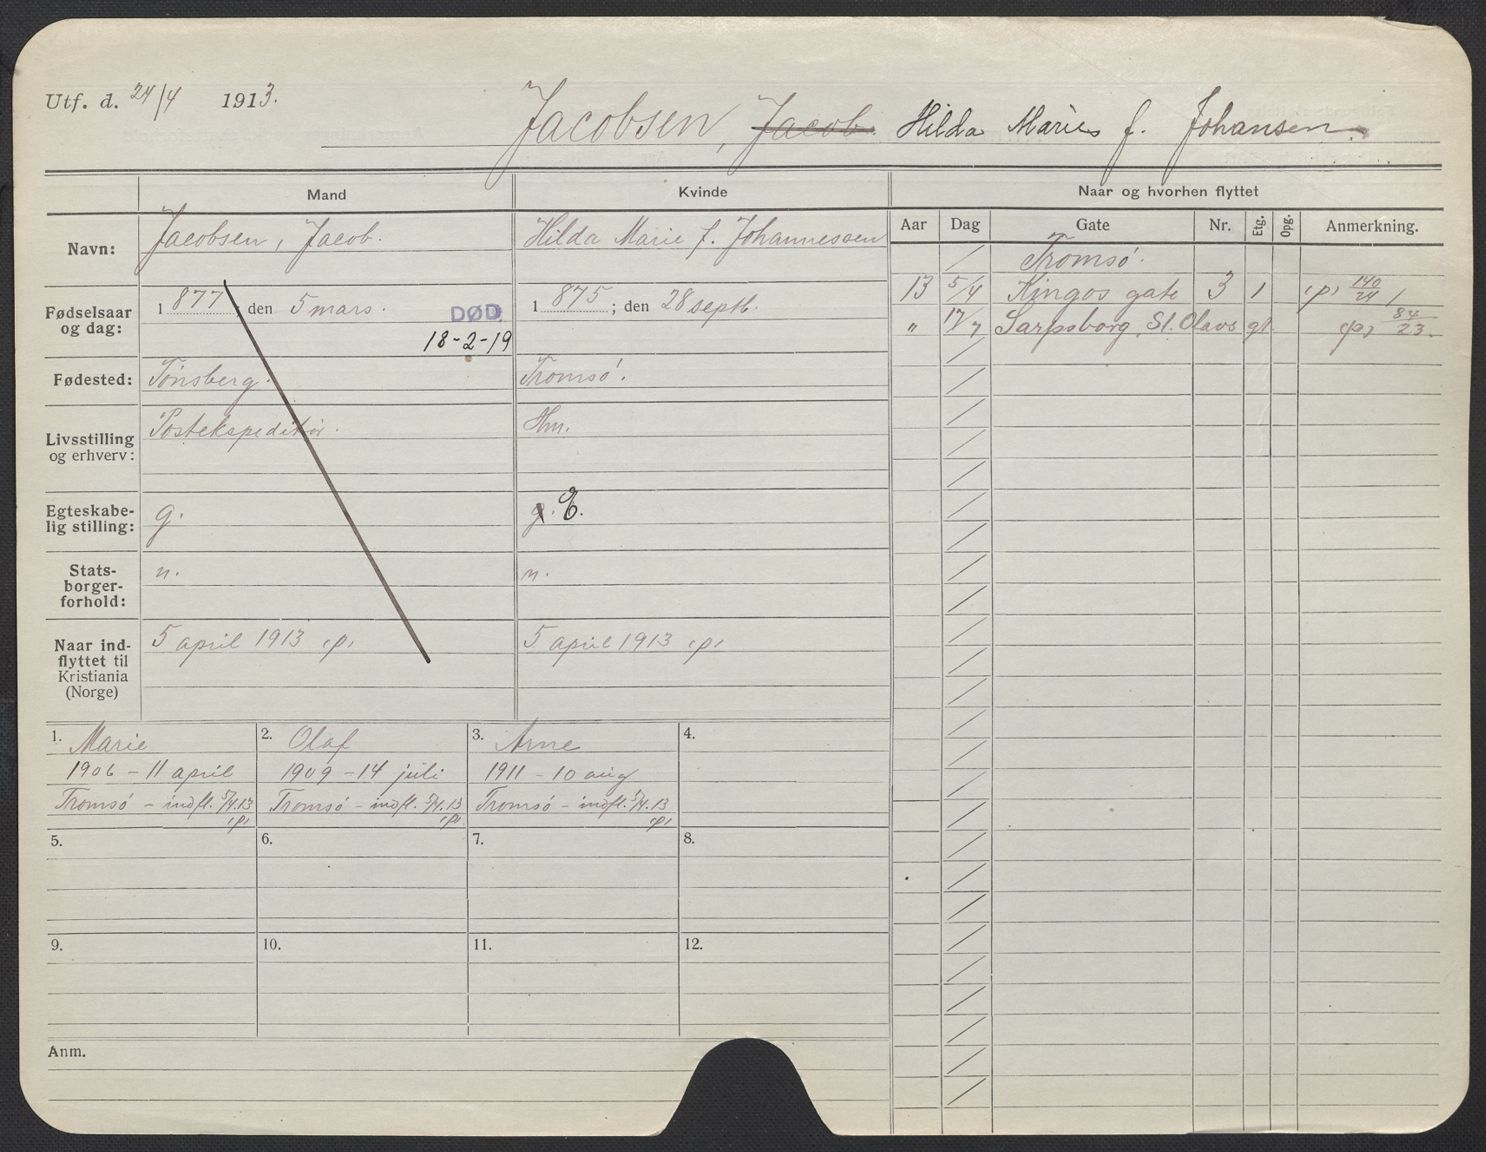 Utf. d. 24/4 1913.
Jacobsen, Jacob. Hilda Marie f. Johansen.
Mand
Kvinde
Naar og hvorhen flyttet
Navn:
Jacobsen, Jacob.
Hilda Marie f. Johannessen
Aar Dag Gate Nr. Etg. Opg. Anmerkning.
Tromsø.
13 5/4 Kingos gate 3 1 "p" 140/24 /
" 17/7 Sarpsborg, St. Olavs gt. "p" 84/23.
Fødselsaar
og dag:
1877; den 5 mars.
DØD
18-2-19
1875; den 28 septb.
Fødested:
Tønsberg.
Tromsø.
Livsstilling
og erhverv:
Postekspeditør.
Hm.
Egteskabe-
lig stilling:
g.
g. E.
Stats-
borger-
forhold:
n.
n.
Naar ind-
flyttet til
Kristiania
(Norge)
5 april 1913 "p"
5 april 1913 "p"
1. Marie
1906 - 11 april
Tromsø - indfl. 5/4.13
"p"
2. Olaf
1909 - 14 juli
Tromsø - indfl. 5/4.13
"p"
3. Arne
1911 - 10 aug
Tromsø - indfl. 5/4.13
"p"
4.
5.
6.
7.
8.
9.
10.
11.
12.
Anm.